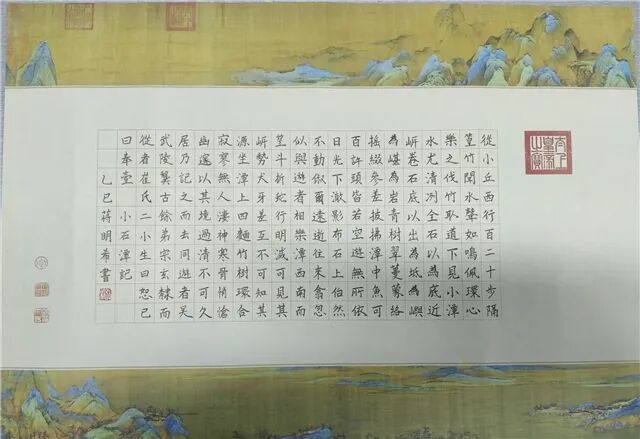 太上皇帝之寶
從小丘西行百二十步隔
篁竹聞水聲如鳴佩環心
樂之伐竹取道下見小潭
水尤清冽全石以為底近
岸卷石底以出為坻為嶼
為嵁為岩青樹翠蔓蒙絡
搖綴參差披拂潭中魚可
百許頭皆若空遊無所依
日光下澈影布石上佁然
不動俶爾遠逝往來翕忽
似與遊者相樂潭西南而
望斗折蛇行明滅可見其
岸勢犬牙差互不可知其
源坐潭上四面竹樹環合
寂寥無人淒神寒骨悄愴
幽邃以其境過清不可久
居乃記之而去同遊者吴
武陵龔古余弟宗玄隸而
從者崔氏二小生曰恕己
曰奉壹 小石潭記
乙巳蒋明希書